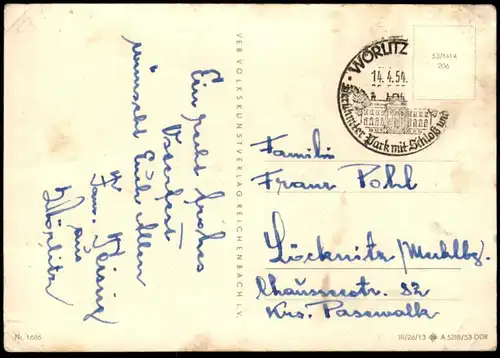 Ein recht frohes
Osterfest
wünscht Euch Allen
Fam.
aus
Wörlitz
VEB VOLKSKUNSTVERLAG REICHENBACH i. V.
53/1414
206
WÖRLITZ
14.4.54
Berühmter Park mit Schloß und
Familie
Franz Pohl
Löcknitz/Mecklbg.
Chausseestr. 32
Krs. Pasewalk
Nr. 1686
III/26/13 A 5218/53 DDR